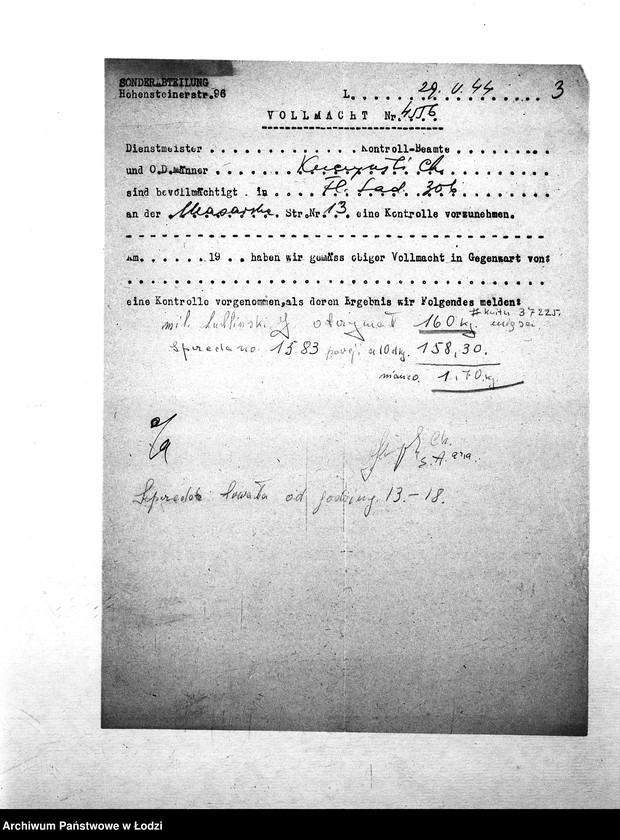 SONDERABTEILUNG
Hohensteinerstr.96 L. . . . . . 29. V. 44 . . . . 3
VOLLMACHT Nr.
Dienstmeister . . . . . . . . . . . . Kontroll-Beamte . . . . . . . . .
und O.D.männer . . . . . . . Ch. . . . . . . . .
sind bevollmächtigt . in . . . . Fl. Lad. 306 . . . . . . .
an der . . . . . . . Str.Nr. 13. eine Kontrolle vorzunehmen.
Am. . . . . . 19 . . haben wir gemäss obiger Vollmacht in Gegenwart von:
eine Kontrolle vorgenommen,als deren Ergebnis wir Folgendes melden:
# kwitu 37225.
mil. Lubliński J. otrzymał 160 kg. mięsa
Sprzedano 1583 porcji a 10 dkg. 158,30.
manco. 1,70 kg
Ch.
S.A.
Sprzedaż trwała od godziny 13.-18.
Archiwum Państwowe w Łodzi